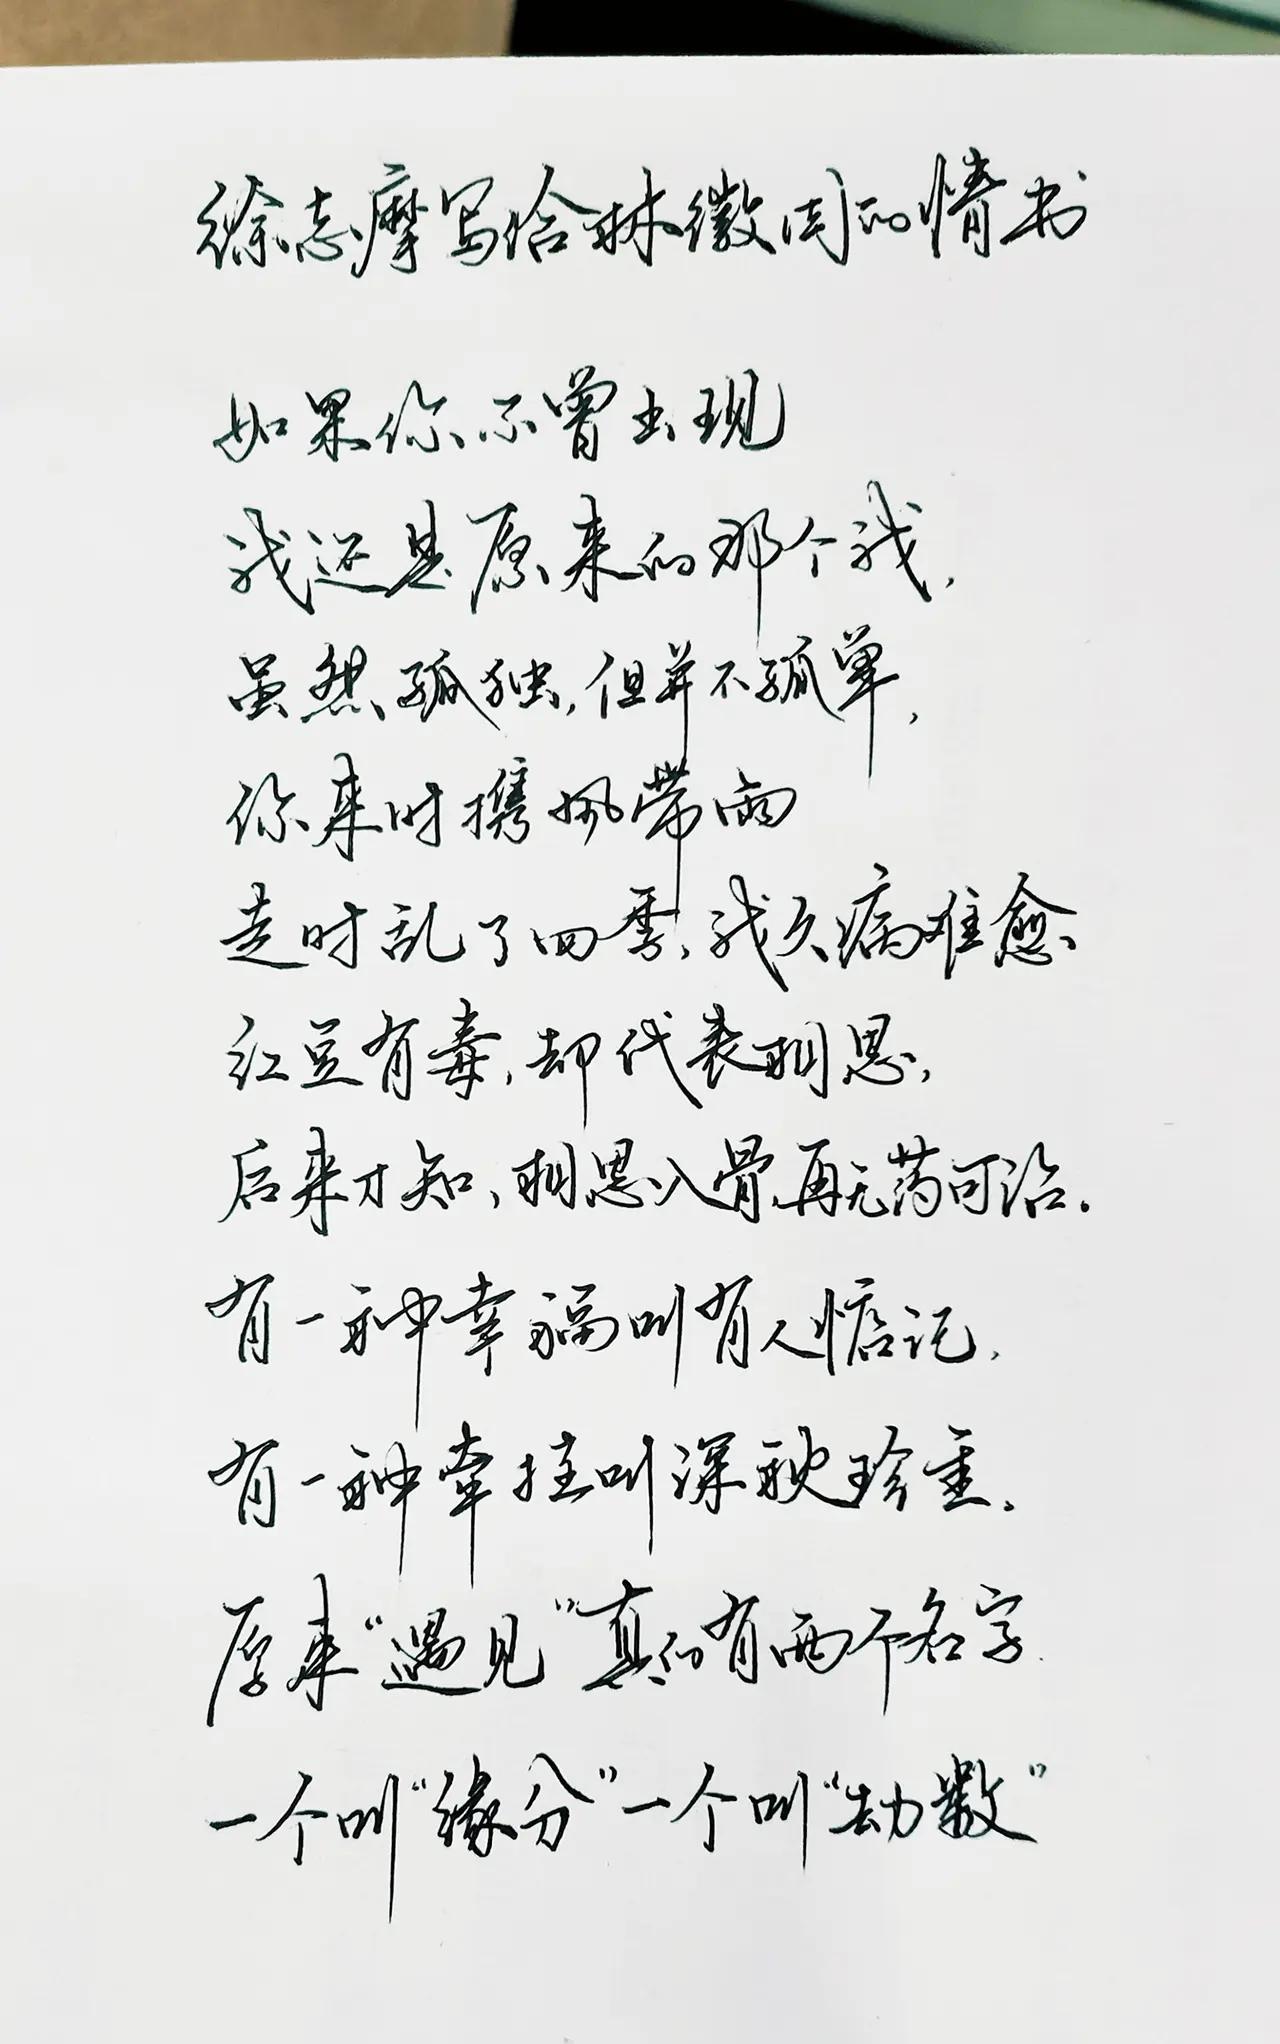 徐志摩写给林徽因的情书
如果你不曾出现
我还是原来的那个我,
虽然孤独,但并不孤单,
你来时携风带雨
走时乱了四季,我久病难愈
红豆有毒,却代表相思,
后来才知,相思入骨,再无药可治.
有一种幸福叫有人惦记.
有一种牵挂叫深秋珍重.
原来“遇见”真的有两个名字.
一个叫“缘分”一个叫“劫数”